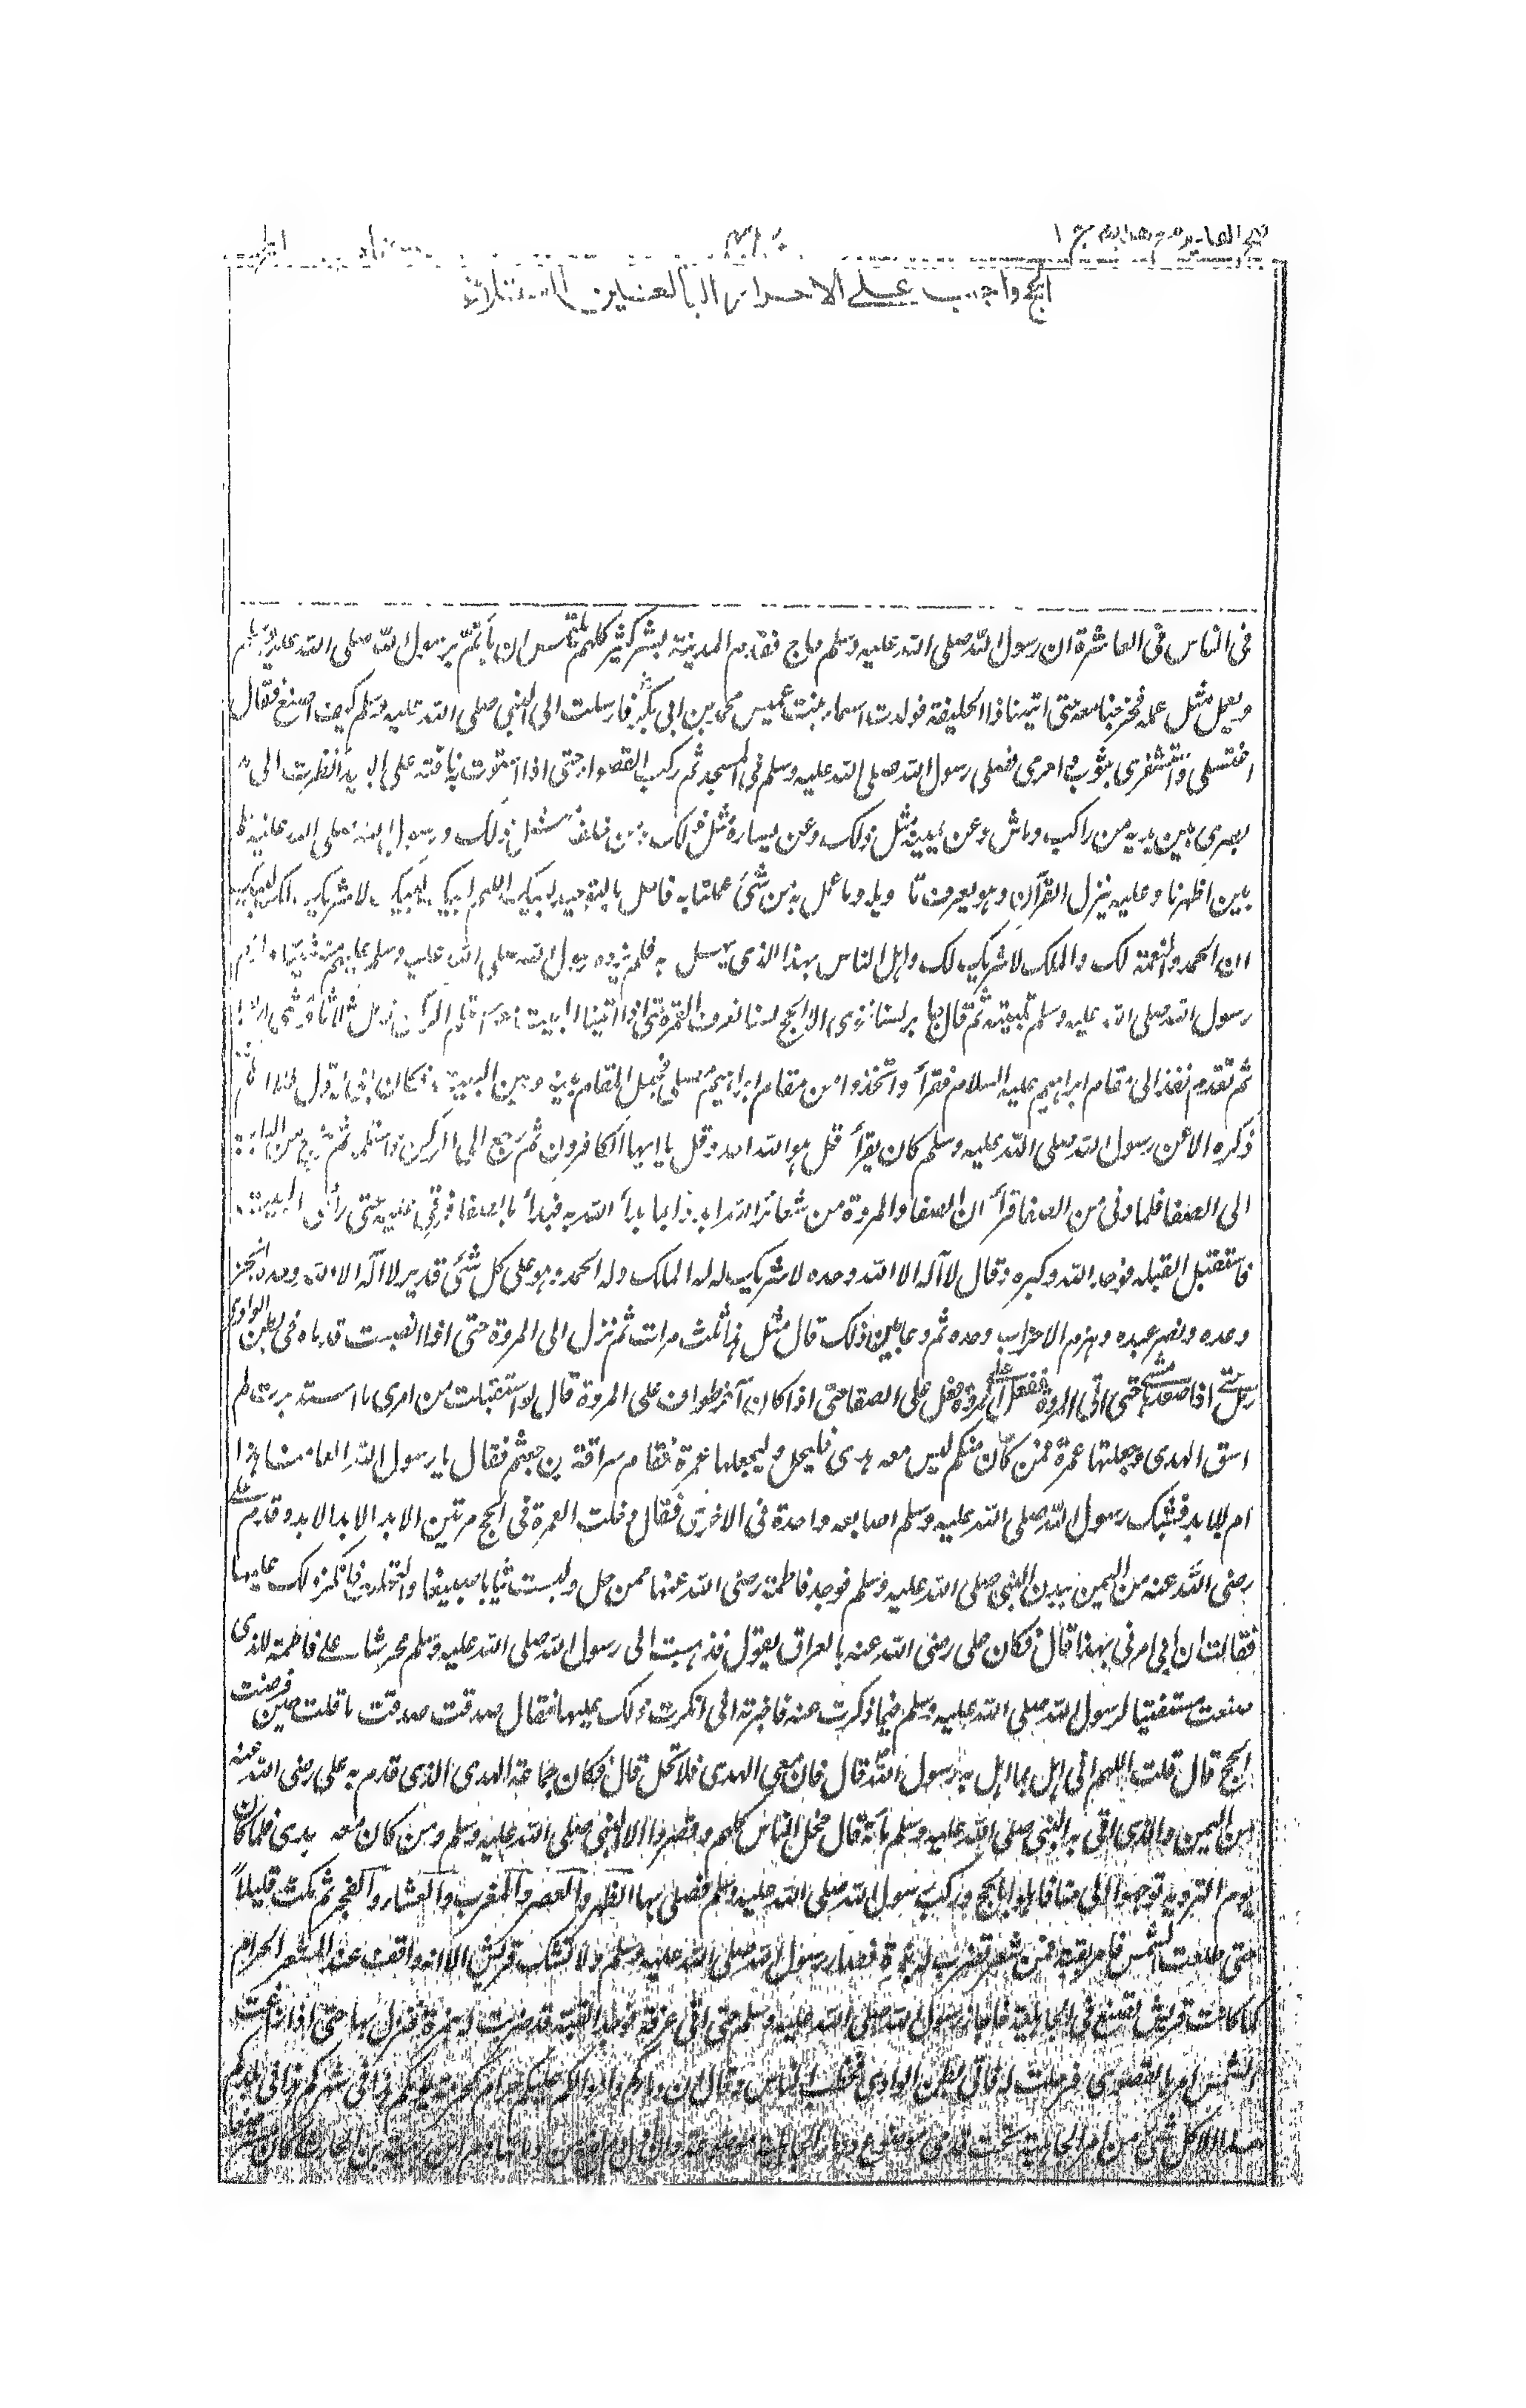 فتح القدير مع هدايه ج ١
الحج واجب على الاحرار البالغين العقلاء
فى الناس فى العاشرة ان رسول الله صلى الله عليه وسلم حاج فقدم المدينة بشر كثير كلهم يلتمس ان يأتم برسول الله صلى الله عليه وسلم
ويعمل مثل عمله فخرجنا معه حتى اتينا ذا الحليفة فولدت اسماء بنت عميس محمد بن ابى بكر فارسلت الى النبى صلى الله عليه وسلم كيف اصنع فقال
اغتسلى واستثفرى بثوب واحرمى فصلى رسول الله صلى الله عليه وسلم فى المسجد ثم ركب القصواء حتى اذا استوت به ناقته على البيداء نظرت الى
بصرى بين يديه من راكب وماش وعن يمينه مثل ذلك وعن يساره مثل ذلك ومن خلفه مثل ذلك ورسول الله صلى الله عليه وسلم
بين اظهرنا وعليه ينزل القرآن وهو يعرف تأويله وما عمل به من شئ عملنا به فاهل بالتوحيد لبيك اللهم لبيك لبيك لا شريك لك لبيك
ان الحمد والنعمة لك والملك لا شريك لك واهل الناس بهذا الذى يهل به فلم يرد رسول الله صلى الله عليه وسلم عليهم شيئا ولزم
رسول الله صلى الله عليه وسلم تلبيته ثم قال جابر لسنا ننوى الا الحج لسنا نعرف العمرة حتى اذا اتينا البيت معه استلم الركن فرمل ثلاثا ومشى اربعا
ثم تقدم نفذ الى مقام ابراهيم عليه السلام فقرأ واتخذوا من مقام ابراهيم مصلى فجعل المقام بينه وبين البيت فكان ابى يقول
ذكره الا عن رسول الله صلى الله عليه وسلم كان يقرأ قل هو الله احد وقل يا ايها الكافرون ثم رجع الى الركن فاستلمه ثم خرج من الباب
الى الصفا فلما دنى من الصفا قرأ ان الصفا والمروة من شعائر الله ابدأ بما بدأ الله به فبدأ بالصفا فرقى عليه حتى رأى البيت
فاستقبل القبلة فوحد الله وكبره وقال لا اله الا الله وحده لا شريك له له الملك وله الحمد وهو على كل شئ قدير لا اله الا الله وحده انجز
وعده ونصر عبده وهزم الاحزاب وحده ثم دعا بين ذلك قال مثل هذا ثلث مرات ثم نزل الى المروة حتى اذا انصبت قدماه فى بطن الوادى
رمل حتى اذا صعدتا مشى حتى اتى المروة ففعل على المروة كما فعل على الصفا حتى اذا كان آخر طواف على المروة قال لو استقبلت من امرى ما استدبرت لم
اسق الهدى وجعلتها عمرة فمن كان منكم ليس معه هدى فليحل وليجعلها عمرة فقام سراقة بن جعشم فقال يا رسول الله العامنا هذا
ام للابد فشبك رسول الله صلى الله عليه وسلم اصابعه واحدة فى الاخرى فقال دخلت العمرة فى الحج مرتين لا بد لابد الابد وقدم على
رضى الله عنه من اليمن ببدن النبى صلى الله عليه وسلم فوجد فاطمة رضى الله عنها ممن حل ولبست ثيابا صبيغا واكتحلت فانكر ذلك عليها
فقالت ان ابى امرنى بهذا قال فكان على رضى الله عنه بالعراق يقول فذهبت الى رسول الله صلى الله عليه وسلم محرشا على فاطمة للذى
صنعت مستفتيا لرسول الله صلى الله عليه وسلم فيما ذكرت عنه فاخبرته انى انكرت ذلك عليها فقال صدقت صدقت ما قلت حين فرضت
الحج قال قلت اللهم انى اهل بما اهل به رسول الله قال فان معى الهدى فلا تحل قال فكان جماعة الهدى الذى قدم به على رضى الله عنه
من اليمن والذى اتى به النبى صلى الله عليه وسلم مائة قال فحل الناس كلهم وقصروا الا النبى صلى الله عليه وسلم ومن كان معه هدى فلما كان
يوم التروية توجهوا الى منا فاهلوا بالحج وركب رسول الله صلى الله عليه وسلم فصلى بها الظهر والعصر والمغرب والعشاء والفجر ثم مكث قليلاً
حتى طلعت الشمس فامر بقبة من شعر تضرب له بنمرة فسار رسول الله صلى الله عليه وسلم ولا تشك قريش الا انه واقف عند المشعر الحرام
كما كانت قريش تصنع فى الجاهلية فاجاز رسول الله صلى الله عليه وسلم حتى اتى عرفة فوجد القبة قد ضربت له بنمرة فنزل بها حتى اذا زاغت
الشمس امر بالقصوى فرحلت له فاتى بطن الوادى فخطب الناس وقال ان دماءكم واموالكم عليكم حرام كحرمة يومكم هذا فى شهركم هذا فى بلدكم
هذا الا كل شئ من امر الجاهلية تحت قدمى موضوع ودماء الجاهلية موضوعة وان اول دم